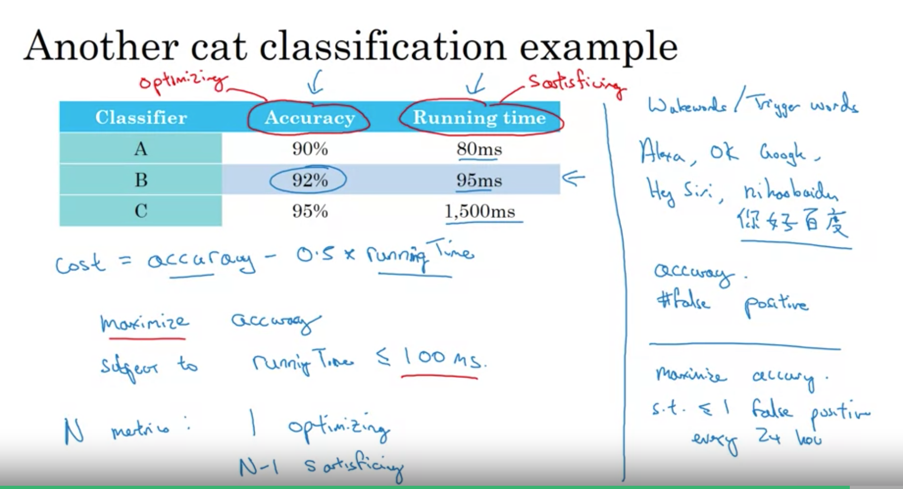 Another cat classification example
optimizing
Satisficing
Classifier Accuracy Running time
A 90% 80ms
B 92% 95ms
C 95% 1,500ms
cost = accuracy - 0.5 x running Time
maximize accuracy
subject to running Time ≤ 100 ms.
N metrics: 1 optimizing
N-1 satisficing
Wakewords / Trigger words
Alexa, OK Google,
Hey Siri, nihaobaidu
你好百度
accuracy.
#false positive
maximize accuracy.
s.t. ≤ 1 false positive
every 24 hou